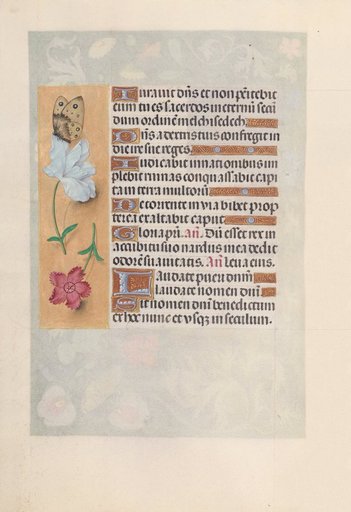 Iurauit dñs et non penitebit
eum tu es sacerdos in eternũ secũ
dum ordinẽ melchisedech.
Dñs a dextris tuis confregit in
die ire sue reges.
Iudicabit in nationibus im
plebit ruinas conquassabit capi
ta in terra multorũ
De torrente in via bibet prop
terea exaltabit caput
Gloria pr̃i. Añ. Dũ esset rex in
accubitu suo nardus mea dedit
odorẽ suauitatis. Añ Leua eius.
Laudate pueri dnm̃
laudate nomen dnĩ
Sit nomen dnĩ benedictum
ex hoc nunc et vsqꝫ in seculum.